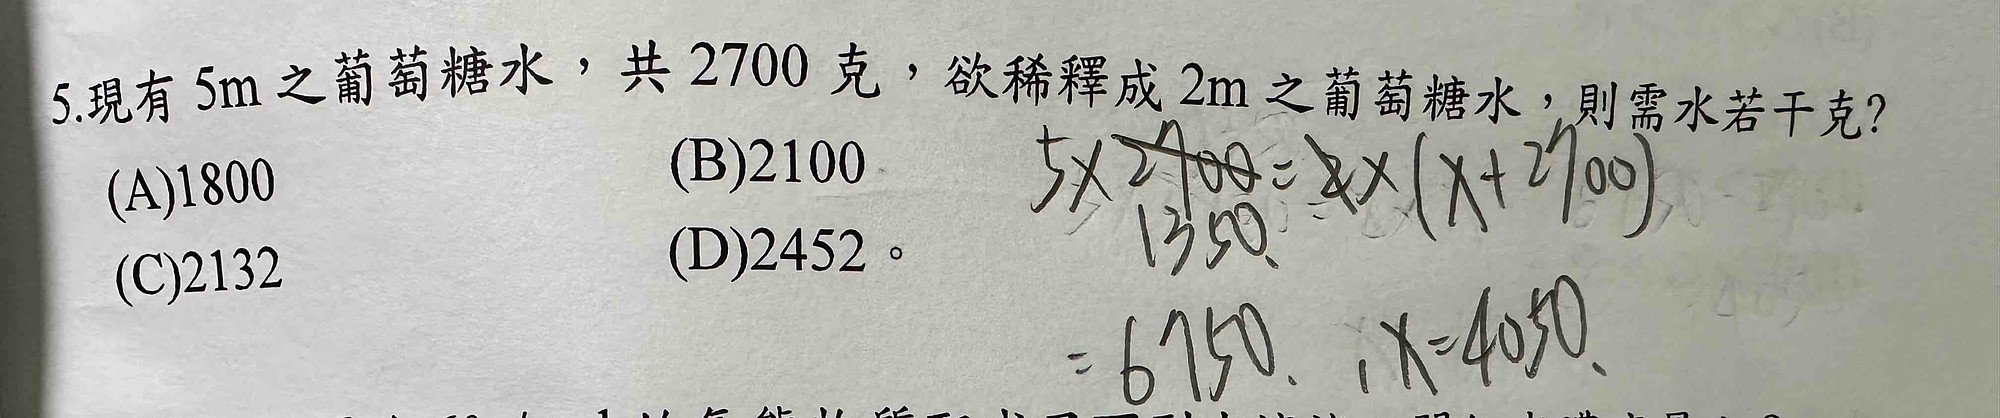 5.現有 5m 之葡萄糖水，共 2700 克，欲稀釋成 2m 之葡萄糖水，則需水若干克?
(A)1800 (B)2100
(C)2132 (D)2452。
5×2700=2×(x+2700)
1350
=6750. x=4050